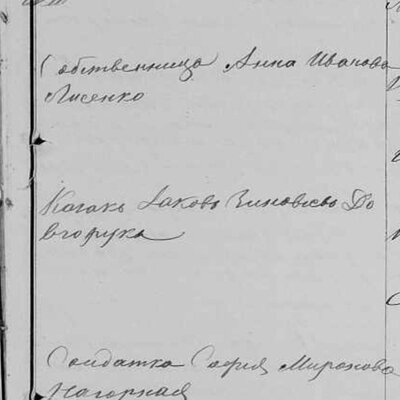 Собственница Анна Иванова
Лисенко
Козакъ Iаковъ Зиновiевъ До
вгорука
Солдатка Софiя Миронова
Нагорная